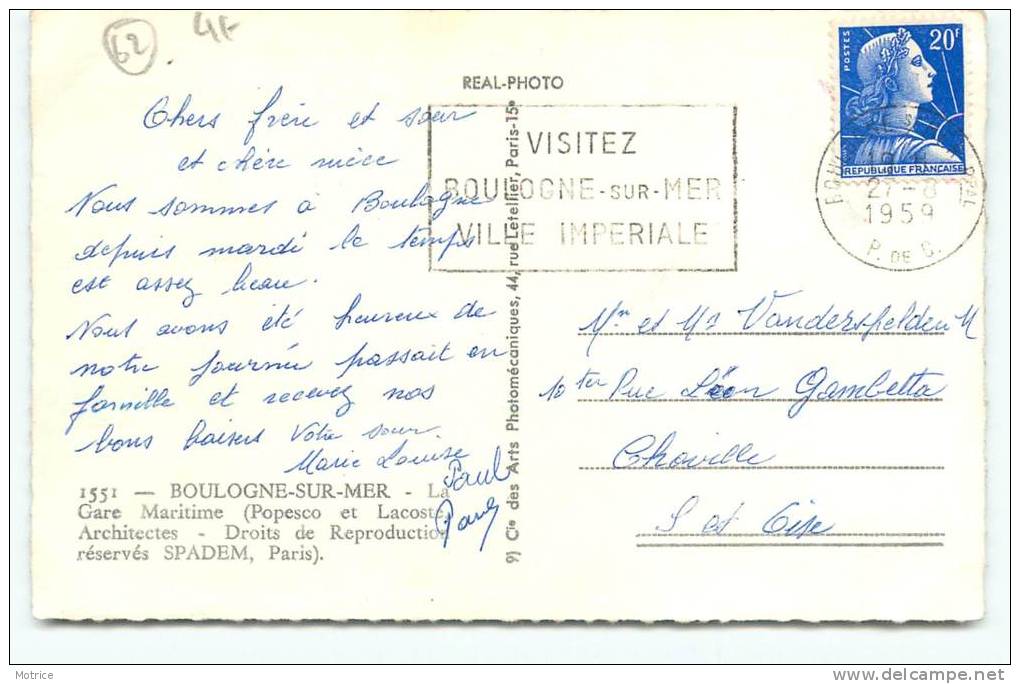 62
4F
REAL-PHOTO
POSTES
20F
REPUBLIQUE FRANÇAISE
VISITEZ
BOULOGNE-SUR-MER
VILLE IMPERIALE
27-8
1959
P. DE C.
Chers frère et sœur
et chère nièce
Nous sommes à Boulogne
depuis mardi le temps
est assez beau.
Nous avons été heureux de
notre journée passait en
famille et recevez nos
bons baisers Votre sœur
Marie Louise
Paul
1551 — BOULOGNE-SUR-MER - La
Gare Maritime (Popesco et Lacoste,
Architectes - Droits de Reproduction
réservés SPADEM, Paris).
9) Cie des Arts Photomécaniques, 44, rue Letellier, Paris-15e
Mm et Mr Vandersfelden M
10 ter Rue Léon Gambetta
Choville
S et Oise
Motrice
www.delcampe.net